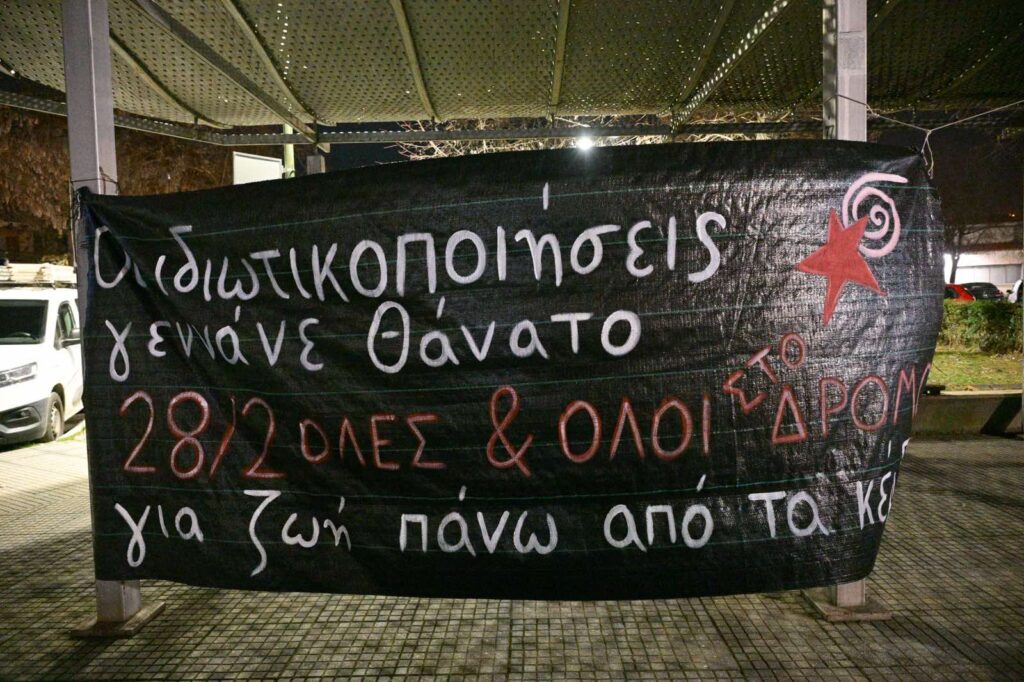 Οι ιδιωτικοποιήσεις
γεννάνε θάνατο
28/2 ΟΛΕΣ & ΟΛΟΙ ΣΤΟ ΔΡΟΜΟ
για ζωή πάνω από τα